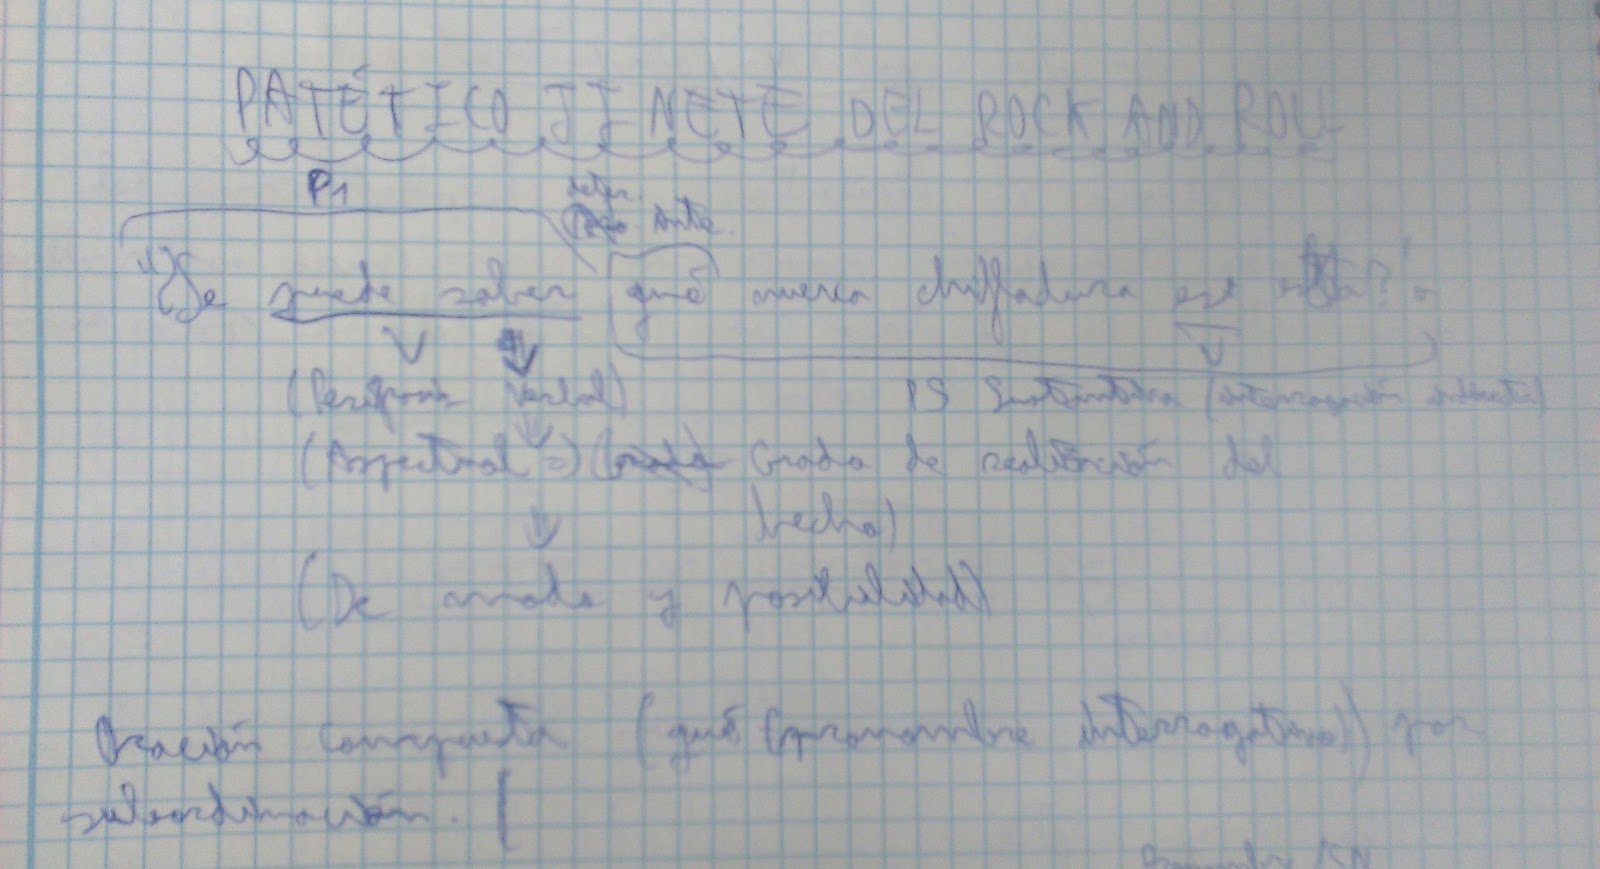 PATÉTICO JINETE DEL ROCK AND ROLL
P1
deter.
Inte.
1) ¿Se puede saber qué nueva chifladura es esta?
(Perífrasis verbal) PS Sustantiva (interrogación indirecta)
(Aspectual => Grado de realización del
hecho)
(De modo y posibilidad)
Oración compuesta (qué (pronombre interrogativo)) por
subordinación.